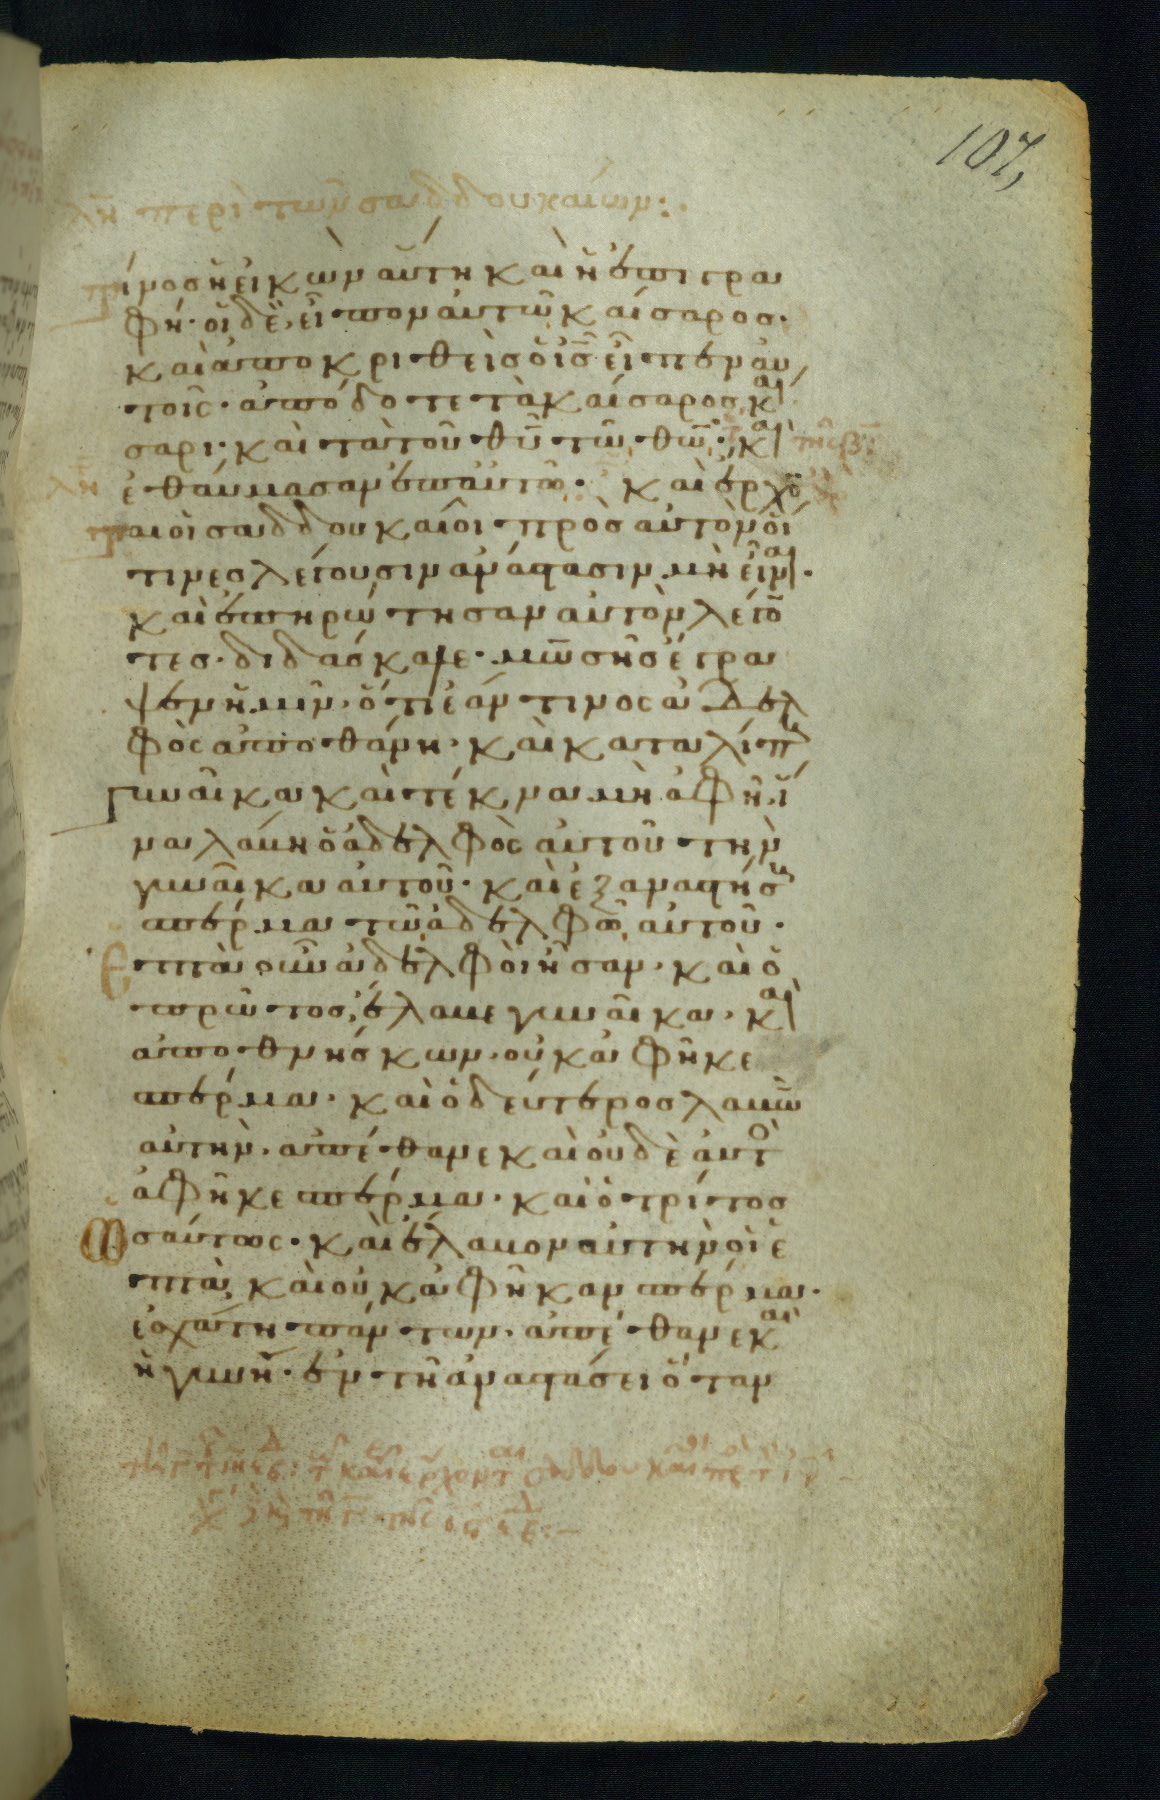 107,
λη περὶ τῶν σαδδουκαίων:
τίνος ἡ εἰκὼν αὕτη καὶ ἡ ἐπιγρα
φή· οἱ δὲ, εἶπον αὐτῶ καίσαρος·
καὶ ἀποκριθεὶς ὁ ις εἶπεν αὐ
τοῖς· ἀπόδοτε τὰ καίσαρος και
σαρι· καὶ τὰ τοῦ θυ τῶ θω· και
ἐθαύμασαν ἐπ αὐτῶ· καὶ ἔρχον
ται οἱ σαδδουκαῖοι πρὸς αὐτὸν οἵ
τινες λέγουσιν ἀνάστασιν μὴ εἶναι·
καὶ ἐπηρώτησαν αὐτὸν λέγο
τες· διδάσκαλε· μωσῆς ἔγρα
ψεν ἡμῖν· ὅτι ἐάν τινος ἀδελ
φὸς ἀποθάνη· καὶ καταλίπη
γυναῖκα καὶ τέκνα μὴ ἀφῆ· ἵ
να λάβη ὁ ἀδελφὸς αὐτοῦ τὴν
γυναῖκα αὐτοῦ· καὶ ἐξαναστήση
σπέρμα τῶ ἀδελφῶ αὐτοῦ·
Ἑπτὰ οὖν ἀδελφοὶ ἦσαν· καὶ ὁ
πρῶτος, ἔλαβε γυναῖκα· καὶ
ἀποθνήσκων· οὐκ ἀφῆκε
σπέρμα· καὶ ὁ δεύτερος λαβὼν
αὐτὴν· ἀπέθανε καὶ οὐδὲ αὐτὸ
ἀφῆκε σπέρμα· καὶ ὁ τρίτος
ὡσαύτως· καὶ ἔλαβον αὐτὴν οἱ ἑ
πτὰ, καὶ οὐκ ἀφῆκαν σπέρμα·
ἐσχάτη πάντων· ἀπέθανε καὶ
ἡ γυνή· ἐν τῆ ἀναστάσει ὅταν